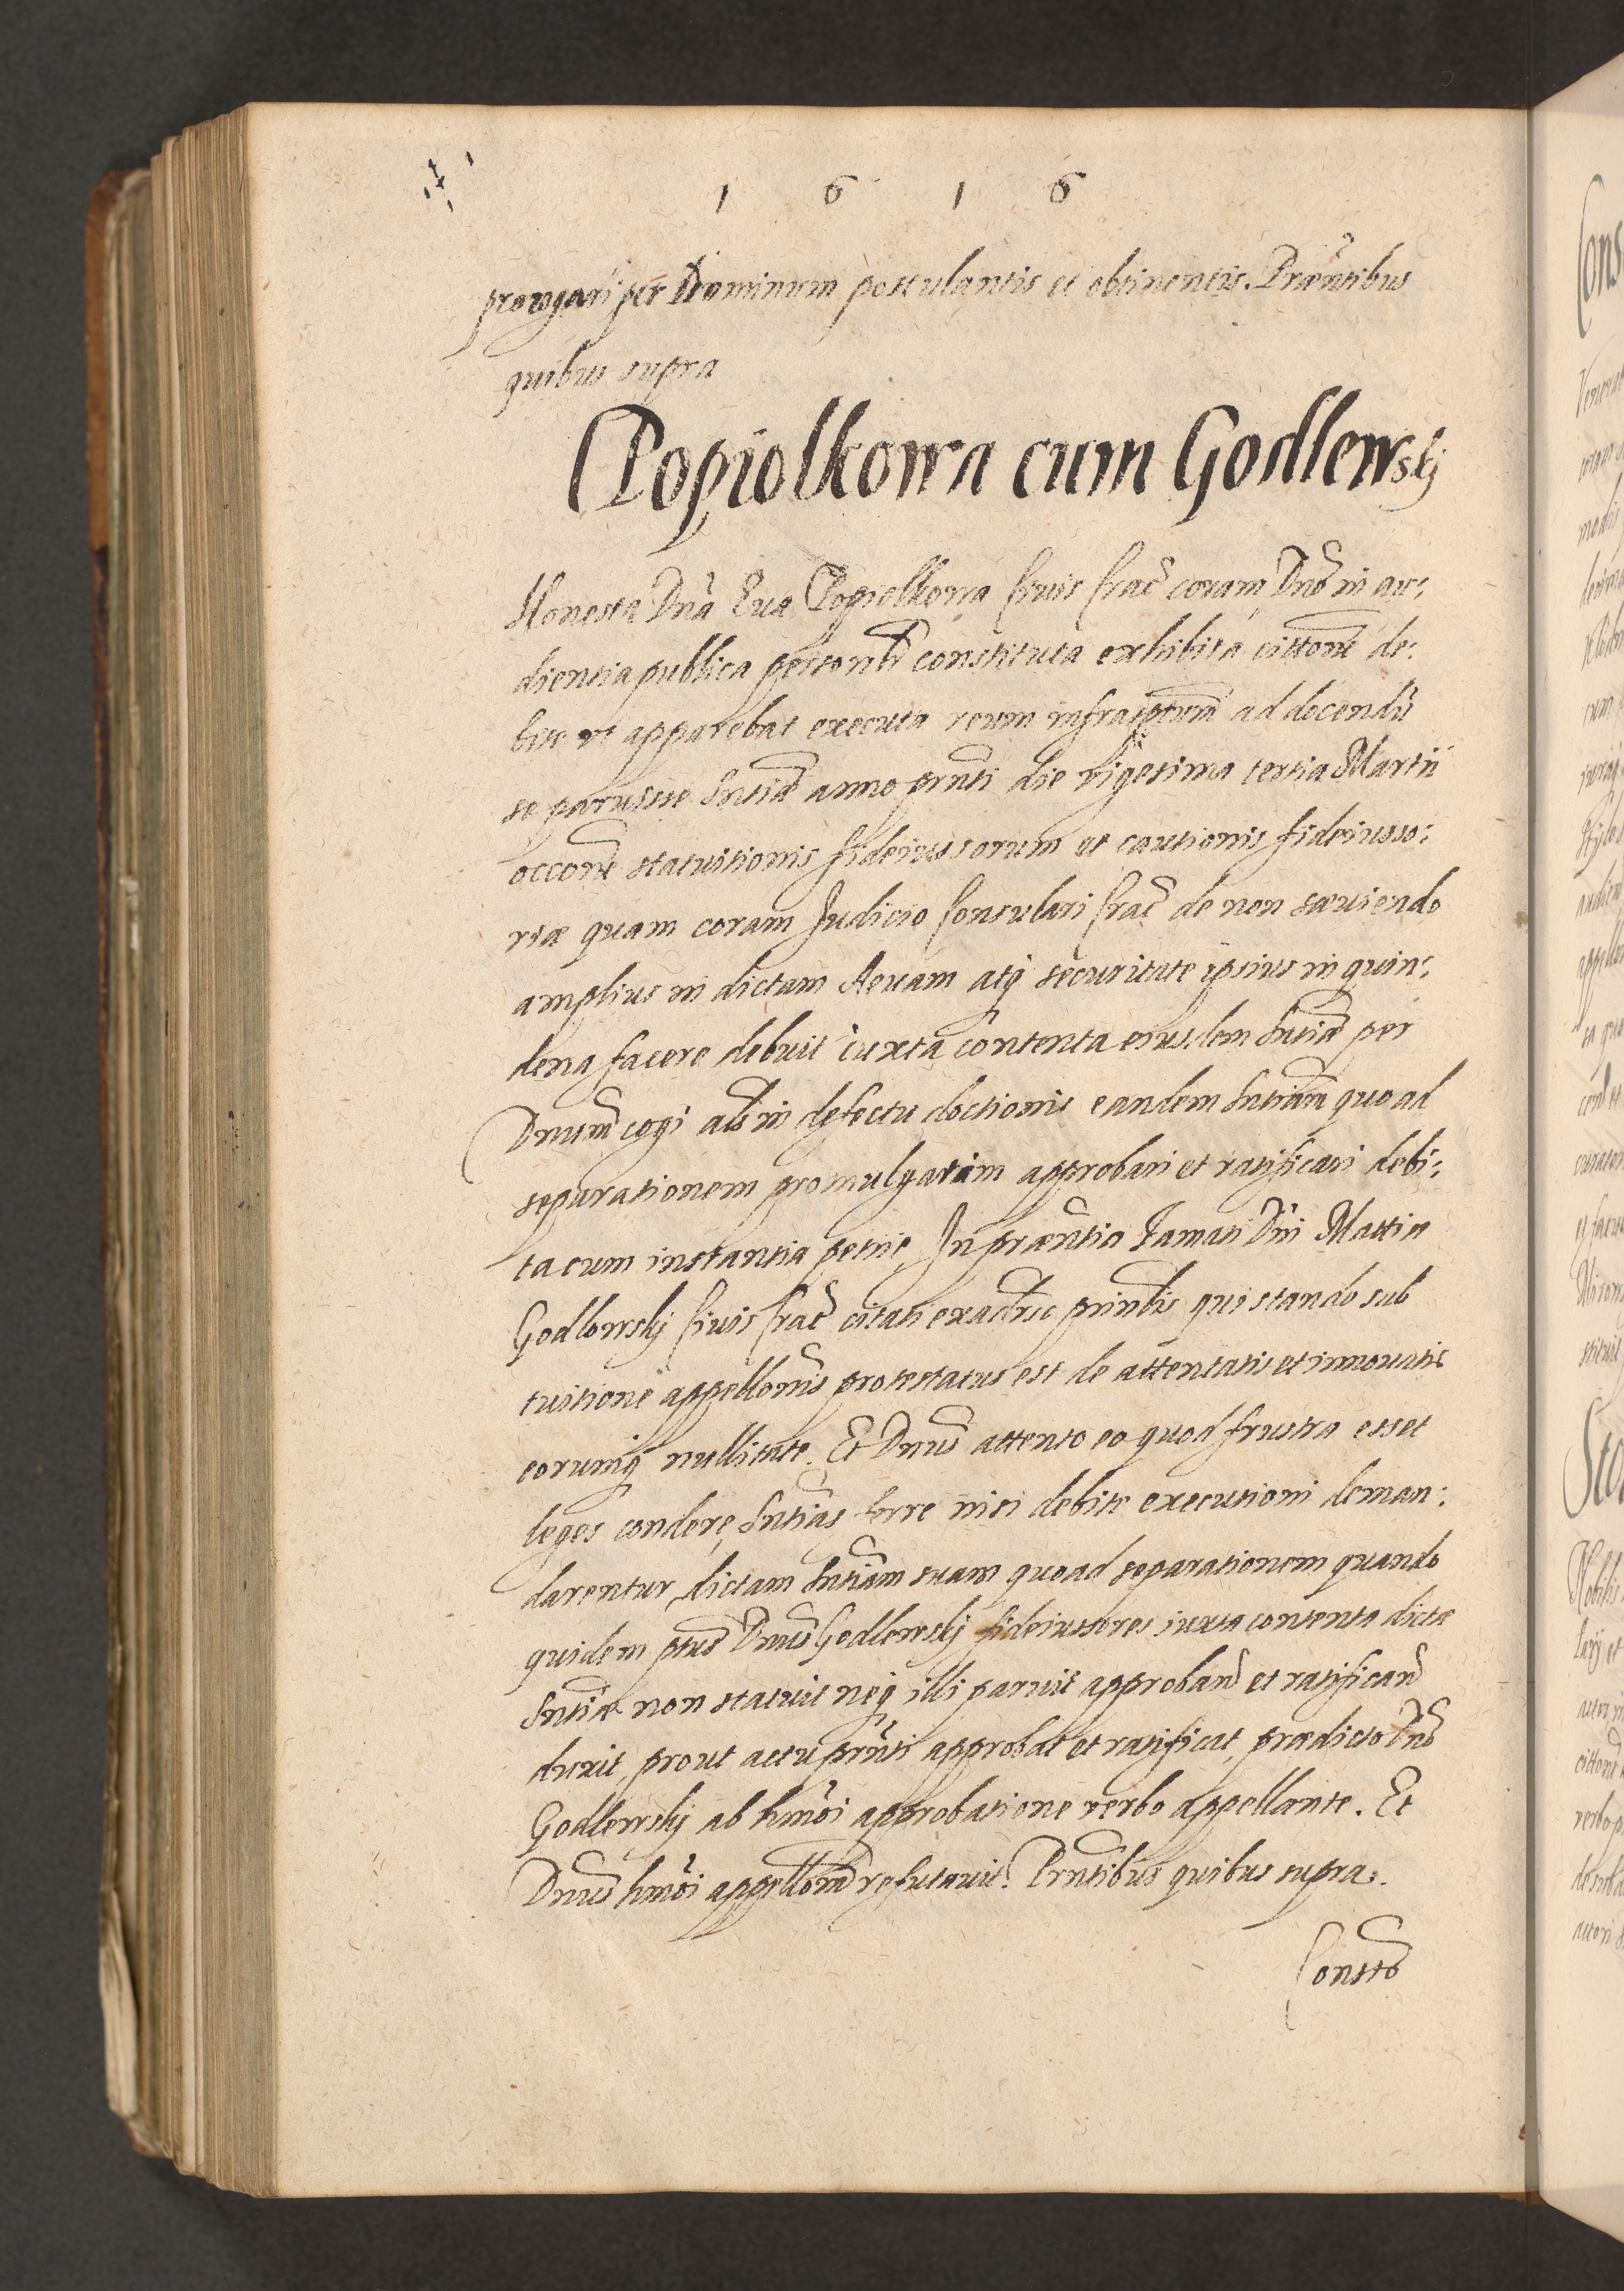 1 6 1 6
prorogari per Dominum postulantis et obtinentis. Præntibus
quibus supra
Popiolkowa cum Godlewskj
Honesta Dna Eua Popiolkowa Ciuis Crac̃ coram Dno in au:
dientia publica personlr constituta exhibita cittone de:
bite vt apparebat executa reum infrascptum ad docendũ
se paruisse Sntiæ anno prnti die vigesima tertia Martii
occone statuitionis fideiussorum et cautionis fideiusso:
riæ quam coram Judicio Consulari Crac̃ de non sæuiendo
amplius in dictam Aeuam atq̃ securitate ipsius in quin:
dena facere debuit iuxta contenta eiusdem Sntiæ per
Dnum cogi als in defectu doctionis eandem Sntiam quo ad
separationem promulgatam approbari et ratificari debi:
ta cum instantia petiit. In præntia Famati Dni Mattiæ
Godlowskj Ciuis Crac̃ citati ex aduerso prnlis qui stando sub
tuitione appellonis protestatus est de attentatis et innouatis
eorumq̃ nullitate. Et Dnus attento eo quod frustra esset
leges condere, Sntias ferre nisi debite executioni deman:
darentur, dictam Sntiam suam quoad separationem quando
quidem ptus Dnus Godlewskj fideiussores iuxta contenta dictæ
Sntiæ non statuit neq̃ illi paruit approband et ratificand
duxit, prout actu prnti approbat et ratificat, prædicto Dno
Godlewskj ab hmoi approbatione verbo appellante. Et
Dnus hmoi appellom refutauit. Prntibus quibus supra.
Constto